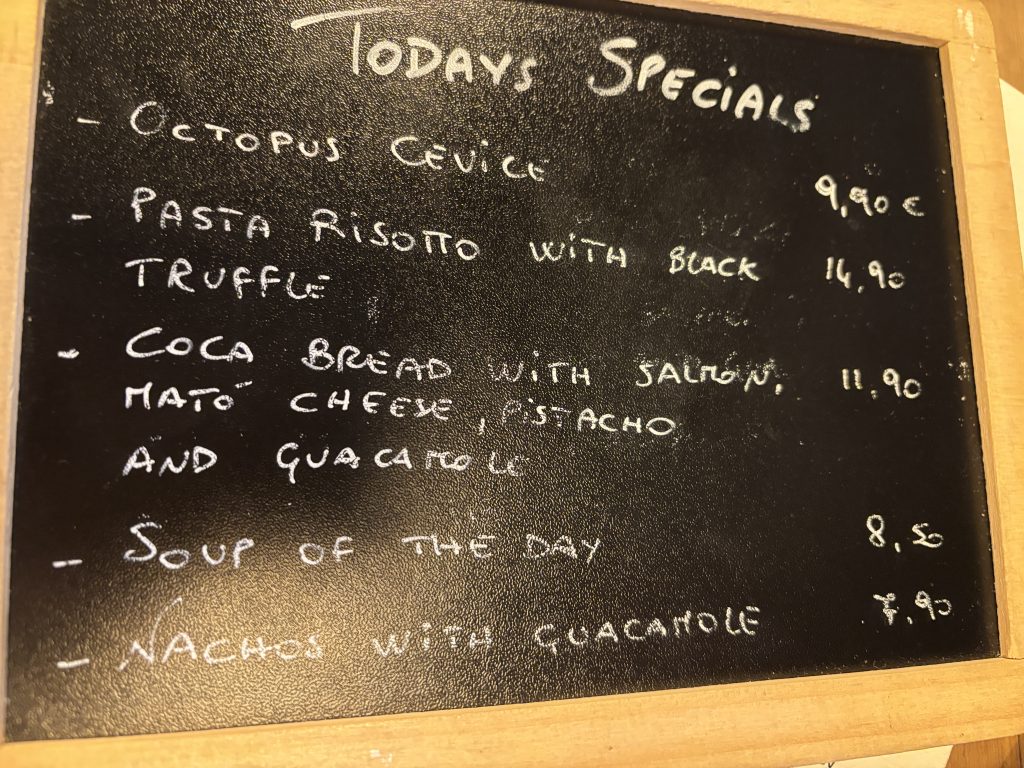 TODAYS SPECIALS
- OCTOPUS CEVICE 9,90 €
- PASTA RISOTTO WITH BLACK 14,90
TRUFFLE
- COCA BREAD WITH SALMÓN, 11,90
MATÓ CHEESE, PISTACHO
AND GUACAMOLE
- SOUP OF THE DAY 8,50
- NACHOS WITH GUACAMOLE 7,90